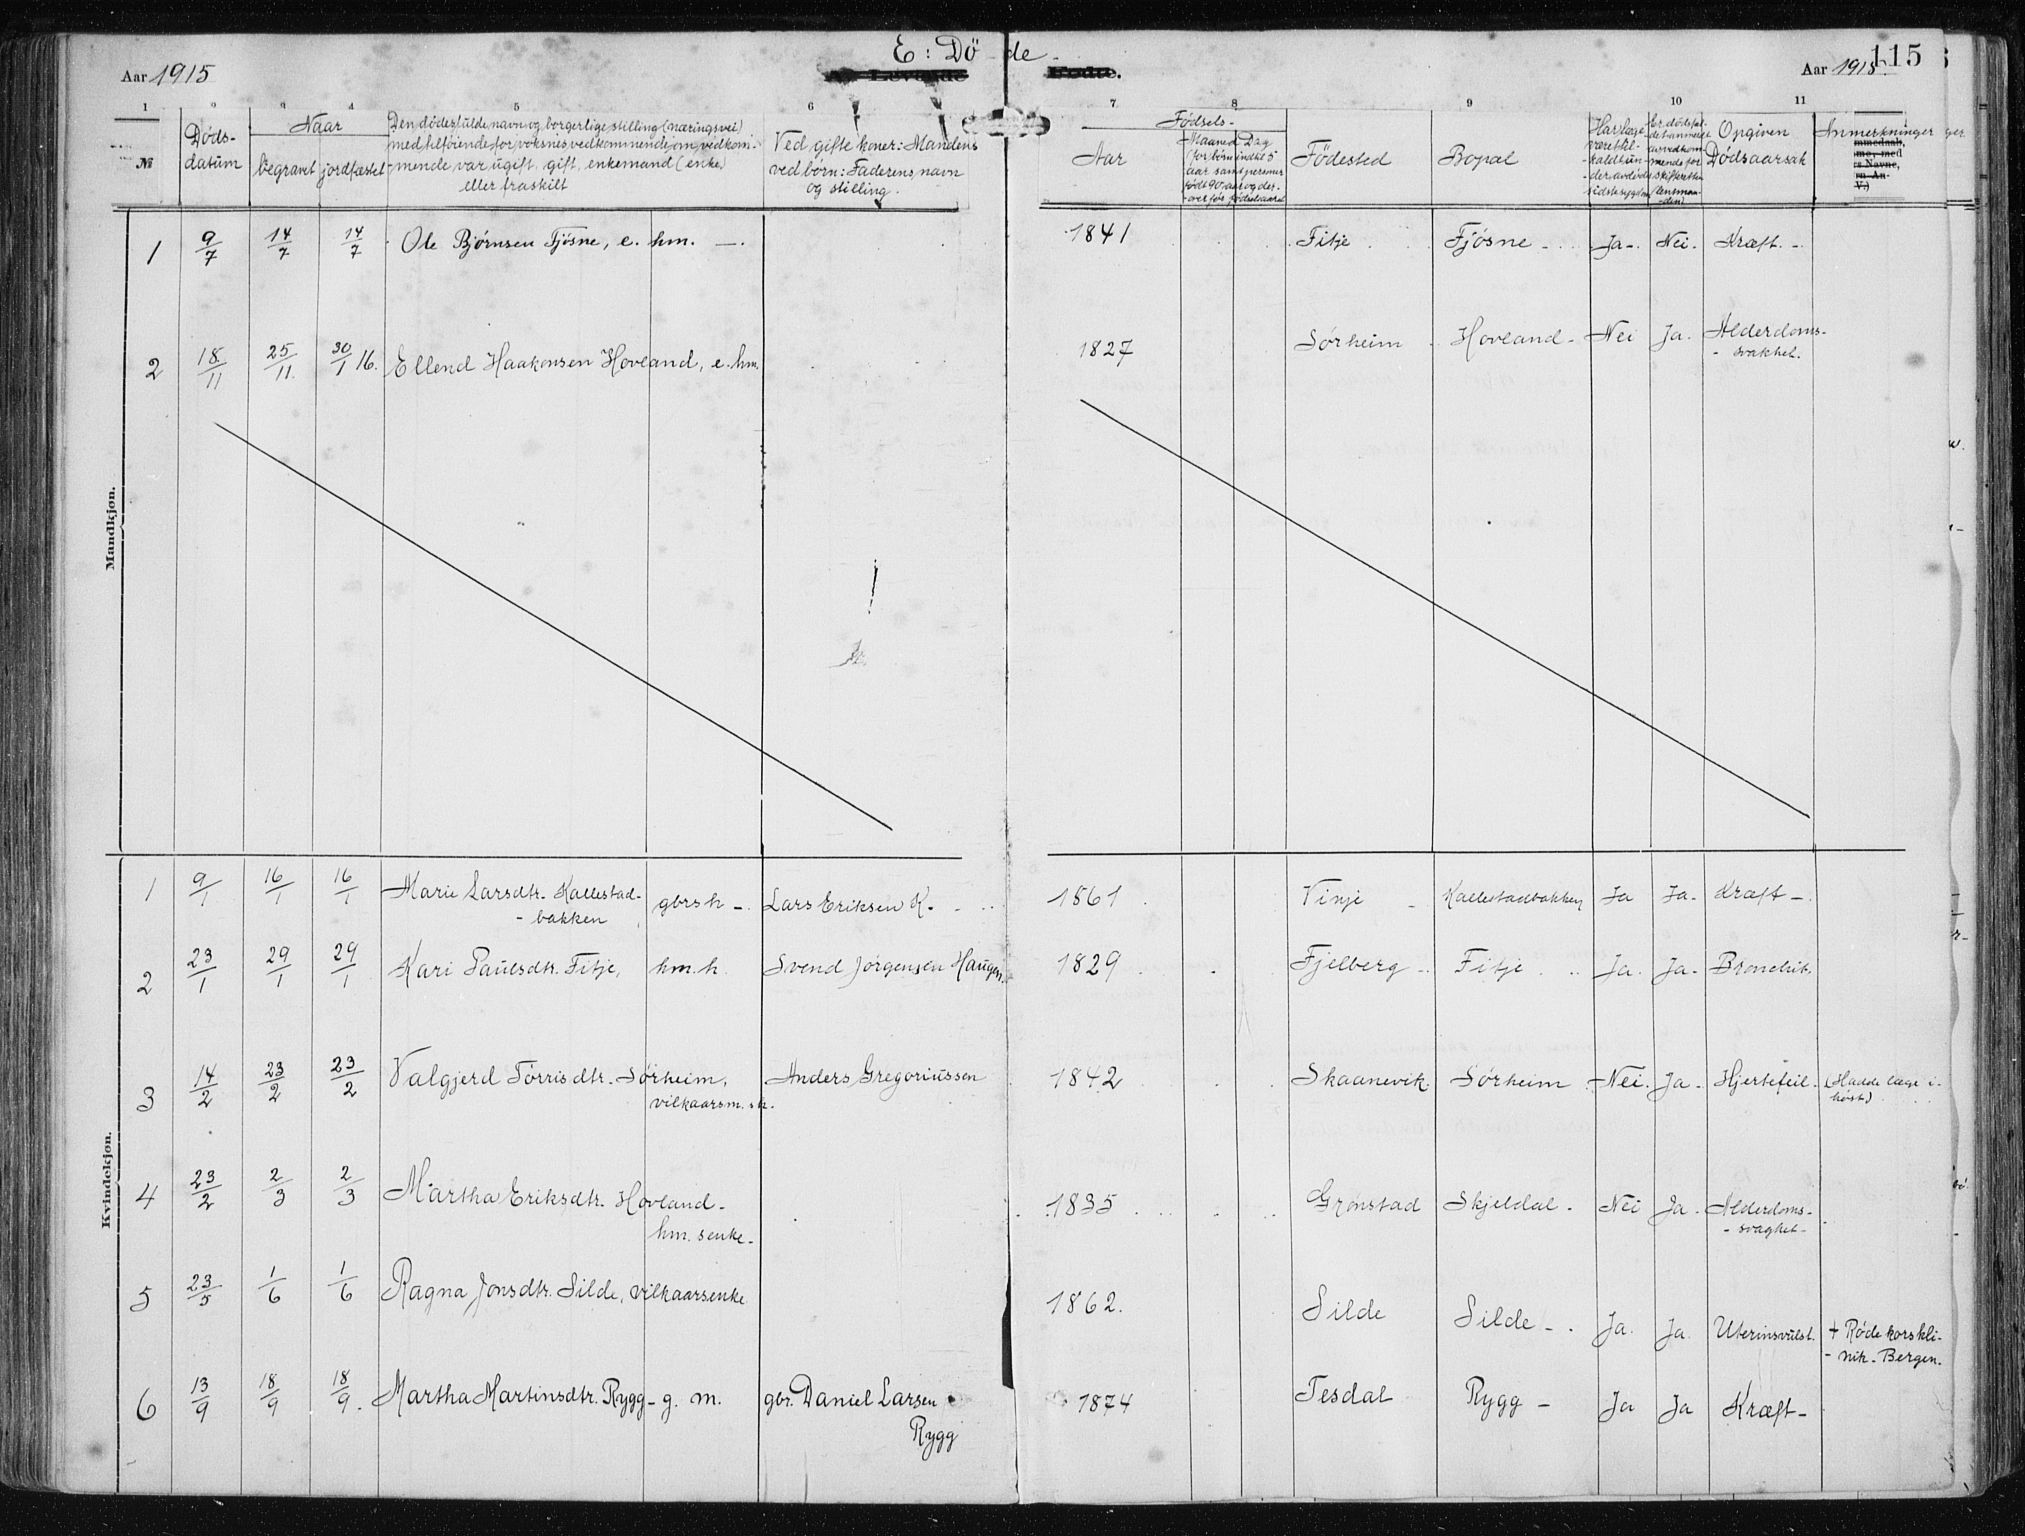 E: Dø de
Aar 1915
115
Aar 1915.
1 2 3 4 5 6 7 8 9 10 11
№
Døds-
datum
Naar
begravet jordfæstet
Den dødes fulde navn og borgerlige stilling (næringsvei)
med tilføiende for voksnes vedkommende, om vedkom-
-mende var ugift, gift, enkemand (enke)
eller fraskilt
Ved gifte koner: Mandens
ved børn: Faderens navn
og stilling.
Fødsels-
Aar
Maaned Dag
(for børn indtil 5
aar samt personer
Fødested
Bopæl
Har læge
været til-
Er dødsfal-
det anmeldt
Opgiven
Dødsaarsak
Anmerkninger
Mandkjøn.
1 9/7 14/7 14/7 Ole Bjørnsen Fjøsne, e. hm. —. 1841 Fitje Fjøsne - Ja-. Nei. Kræft. -
2 18/11 25/11. 30/1 16. Ellend Haakonsen Hovland, e. hm. 1827 Sørheim Hovland- Nei Ja. Alderdoms-
- svakhet.
Kvindekjøn.
1 9/1 16/1 16/1 Marie Larsdtr. Kallestad-
- bakken gbrs h -. Lars Eriksen K. 1861 Vinje Kallestadbakken Ja Ja- Kræft -
2 23/1 29/1 29/1 Kari Paulsdtr. Fitje, hm. h. Svend Jørgensen Haugen. 1829 Fjelberg Fitje Ja. Ja- Bronchit.
3 14/2 23/2 23/2 Valgjerd Tørrisdtr. Sørheim,
vilkaarsm. h. Anders Gregoriussen 1842 Skaanevik. Sørheim Nei. Ja- Hjertefeil. (Hadde læge i
høst)
4 23/2 2/3 2/3 Martha Eriksdtr. Hovland-
hm. s enke- 1835 Grønstad Skjeldal- Nei Ja. Alderdoms-
- svaghet-
5 23/5 1/6 1/6 Ragna Jonsdtr. Silde, vilkaarsenke 1862. Silde Silde-. Ja. Ja. Uterinsvulst. + Røde kors kli-
- nik. Bergen.
6 13/9 18/9 18/9. Martha Martinsdtr. Rygg- g. m. gbr. Daniel Larsen
Rygg 1874 Tesdal Rygg - Ja Ja Kræft-